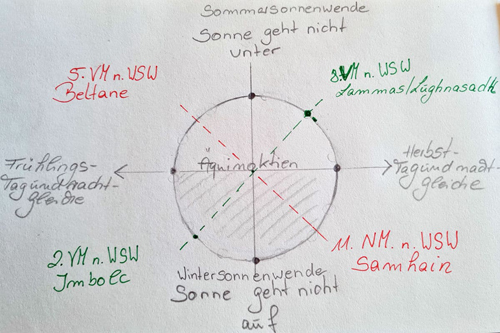 Sommersonnenwende
Sonne geht nicht
unter
5. VM n. WSW
Beltane
8. VM n. WSW
Lammas/Lúghnasadh
Frühlings-
Tagundnacht-
gleiche
Äquinoktien
Herbst-
Tagundnacht-
gleiche
2. VM n. WSW
Imbolc
11. NM. n. WSW
Samhain
Wintersonnenwende
Sonne geht nicht
auf